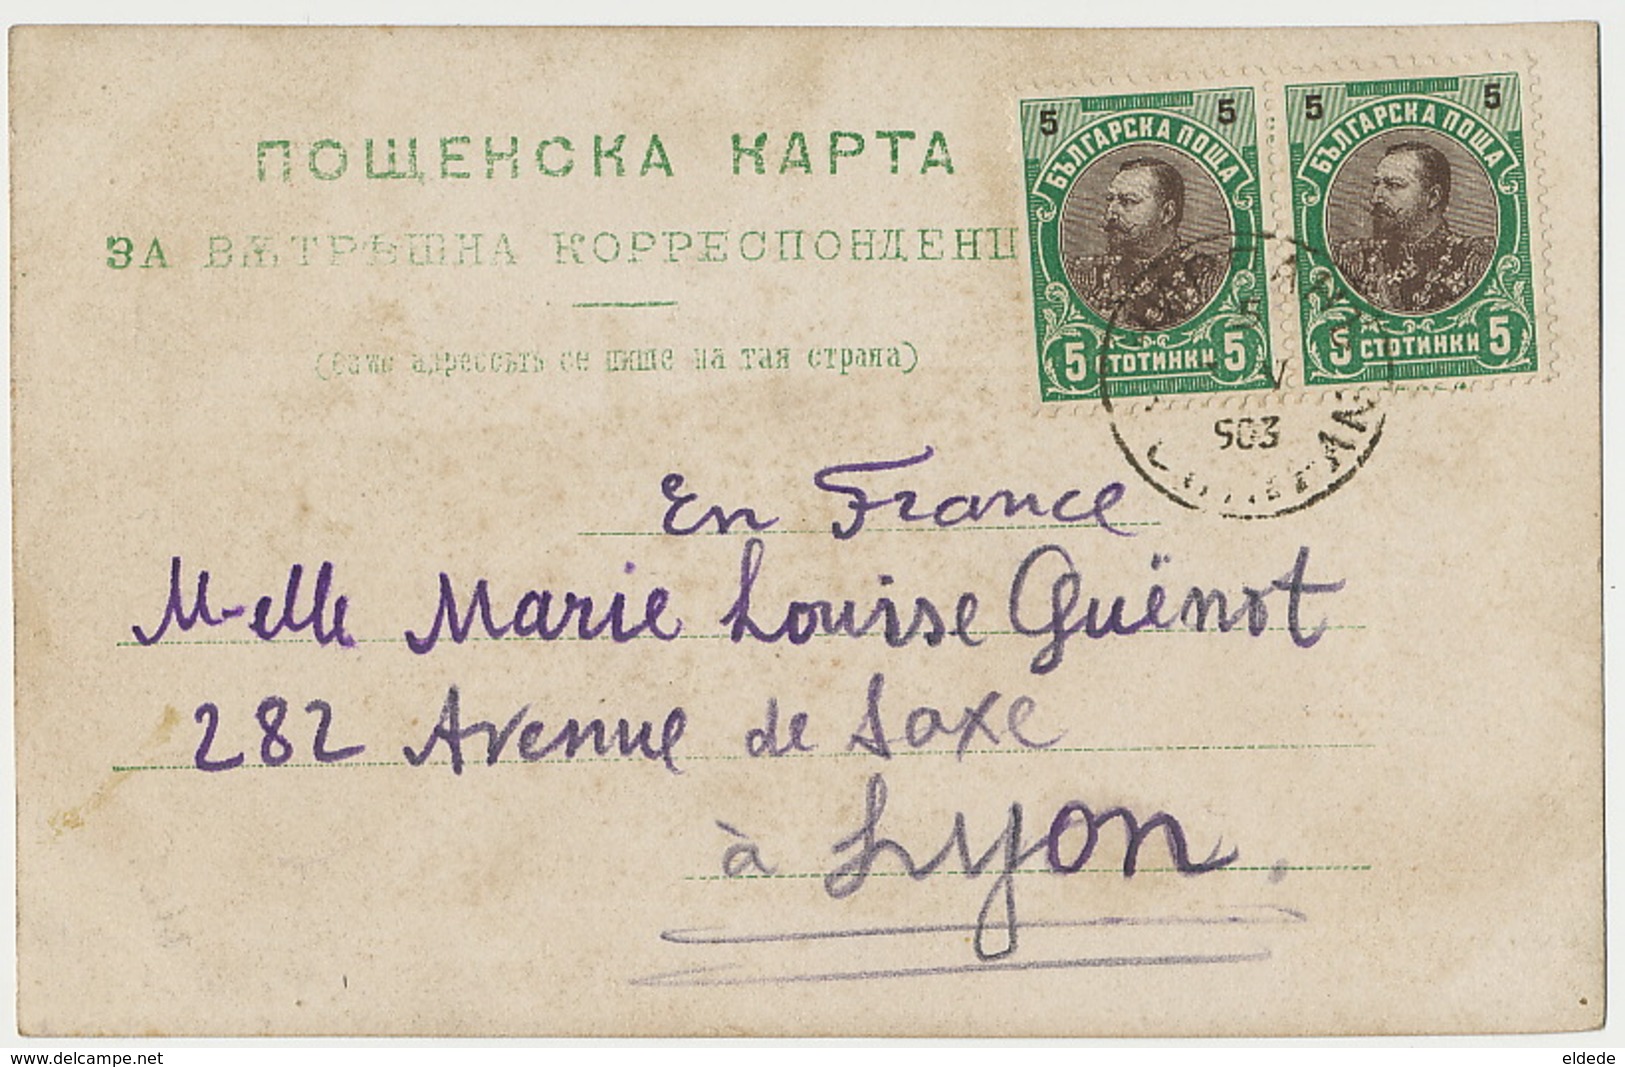 ПОЩЕНСКА КАРТА
ЗА ВѪТРѢШНА КОРРЕСПОНДЕНЦ
(само адрессътъ се пише на тая страна)
5 5
БЪЛГАРСКА ПОЩА
5 СТОТИНКИ 5
5 5
БЪЛГАРСКА ПОЩА
5 СТОТИНКИ 5
5
V
903
En France
M-elle Marie Louise Guënot
282 Avenue de Saxe
à Lyon.
www.delcampe.net
eldede